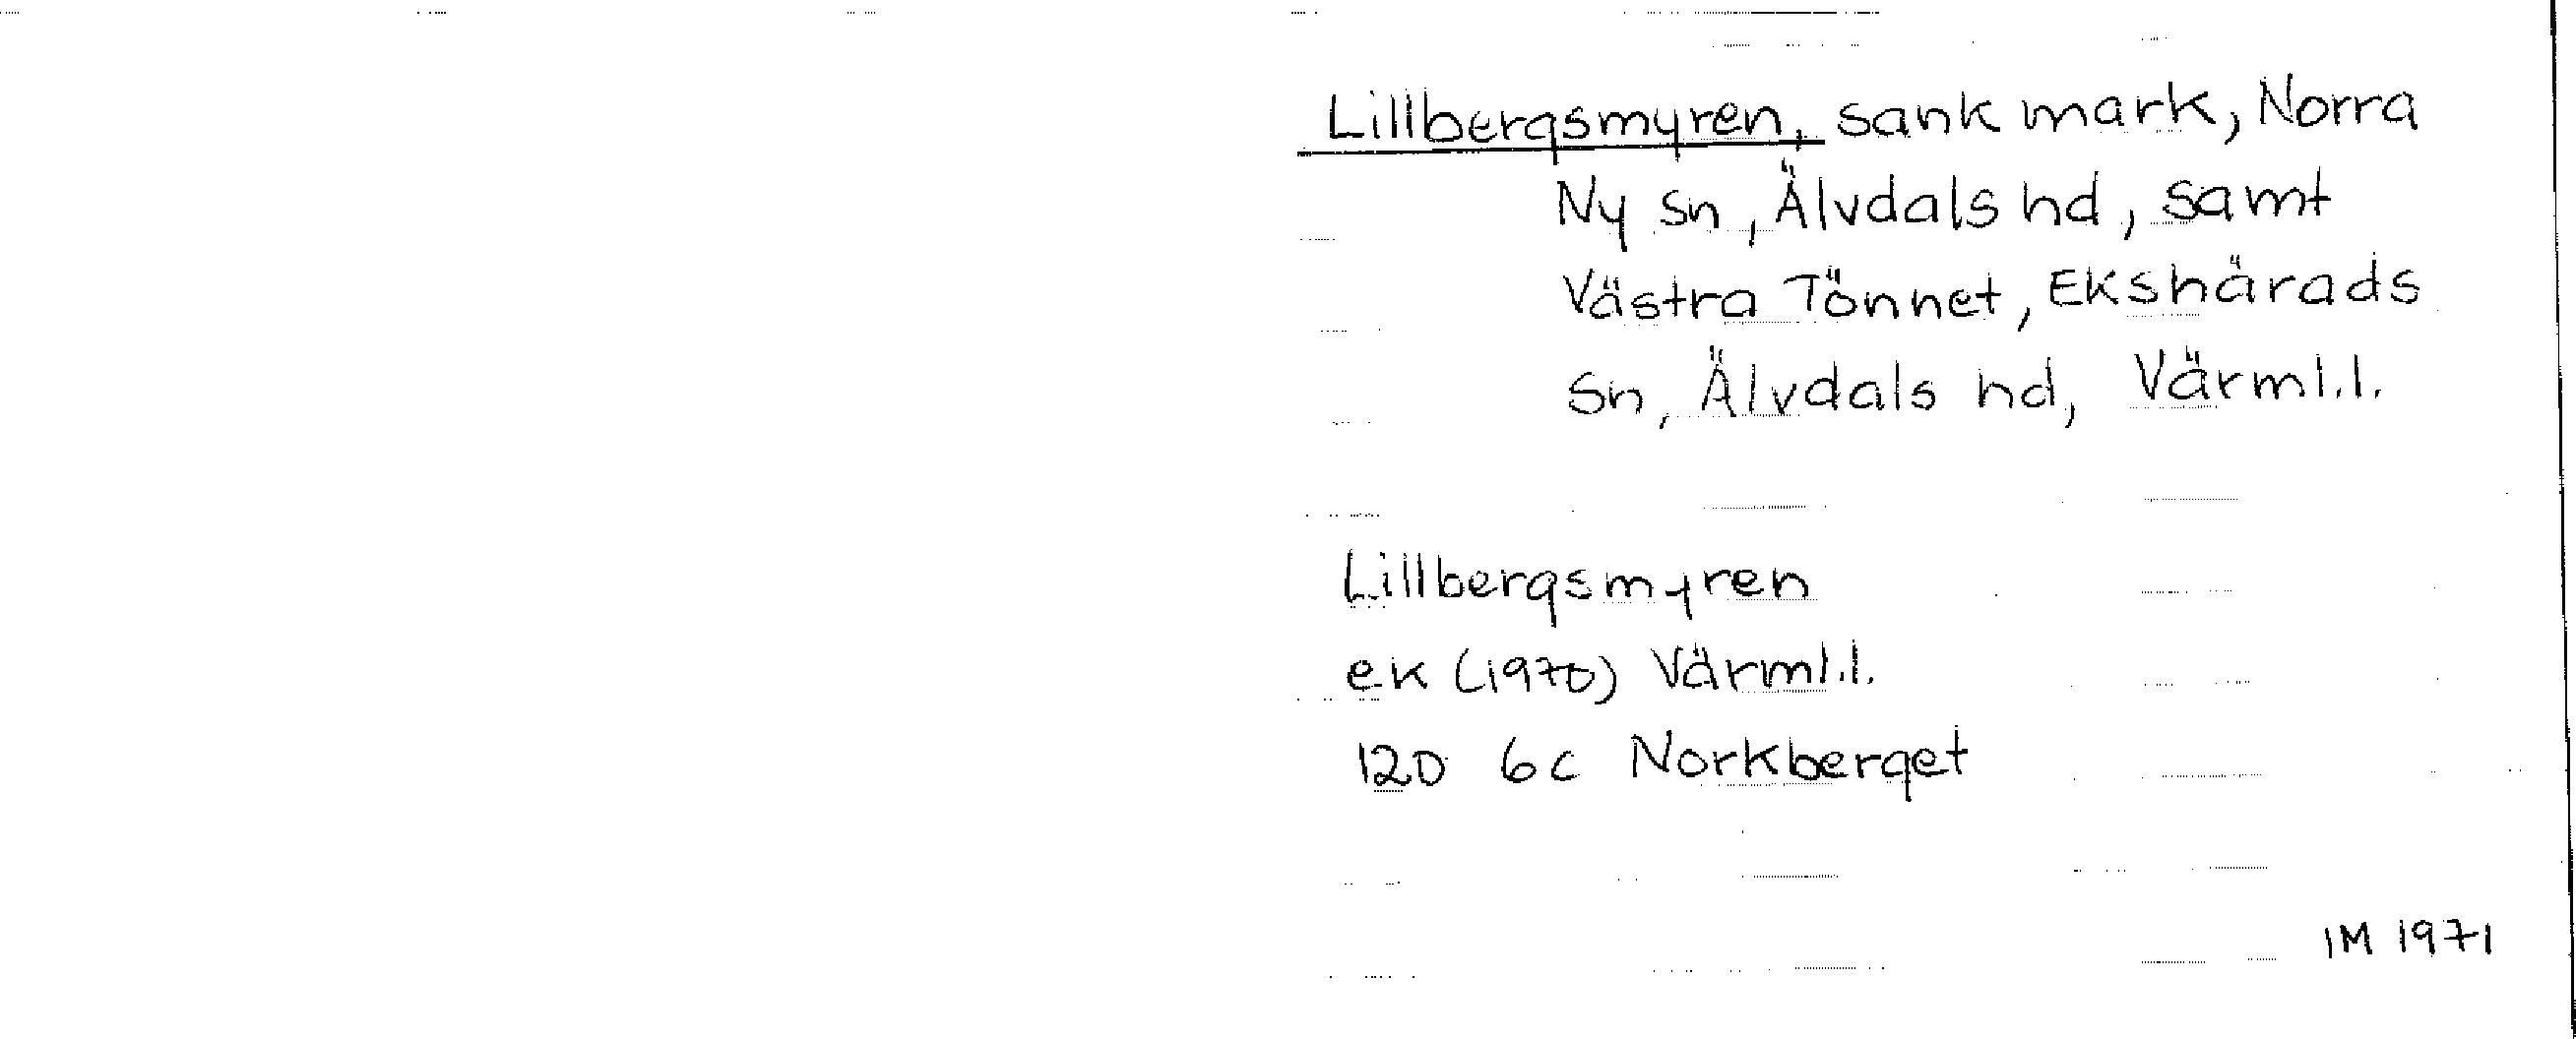 Lillbergsmyren, sank mark, Norra
Ny sn, Älvdals hd, samt
Västra Tönnet, Ekshärads
sn, Älvdals hd, Värml.l.
Lillbergsmyren
ek (1970) Värml.l.
12D 6c Norkberget
IM 1971